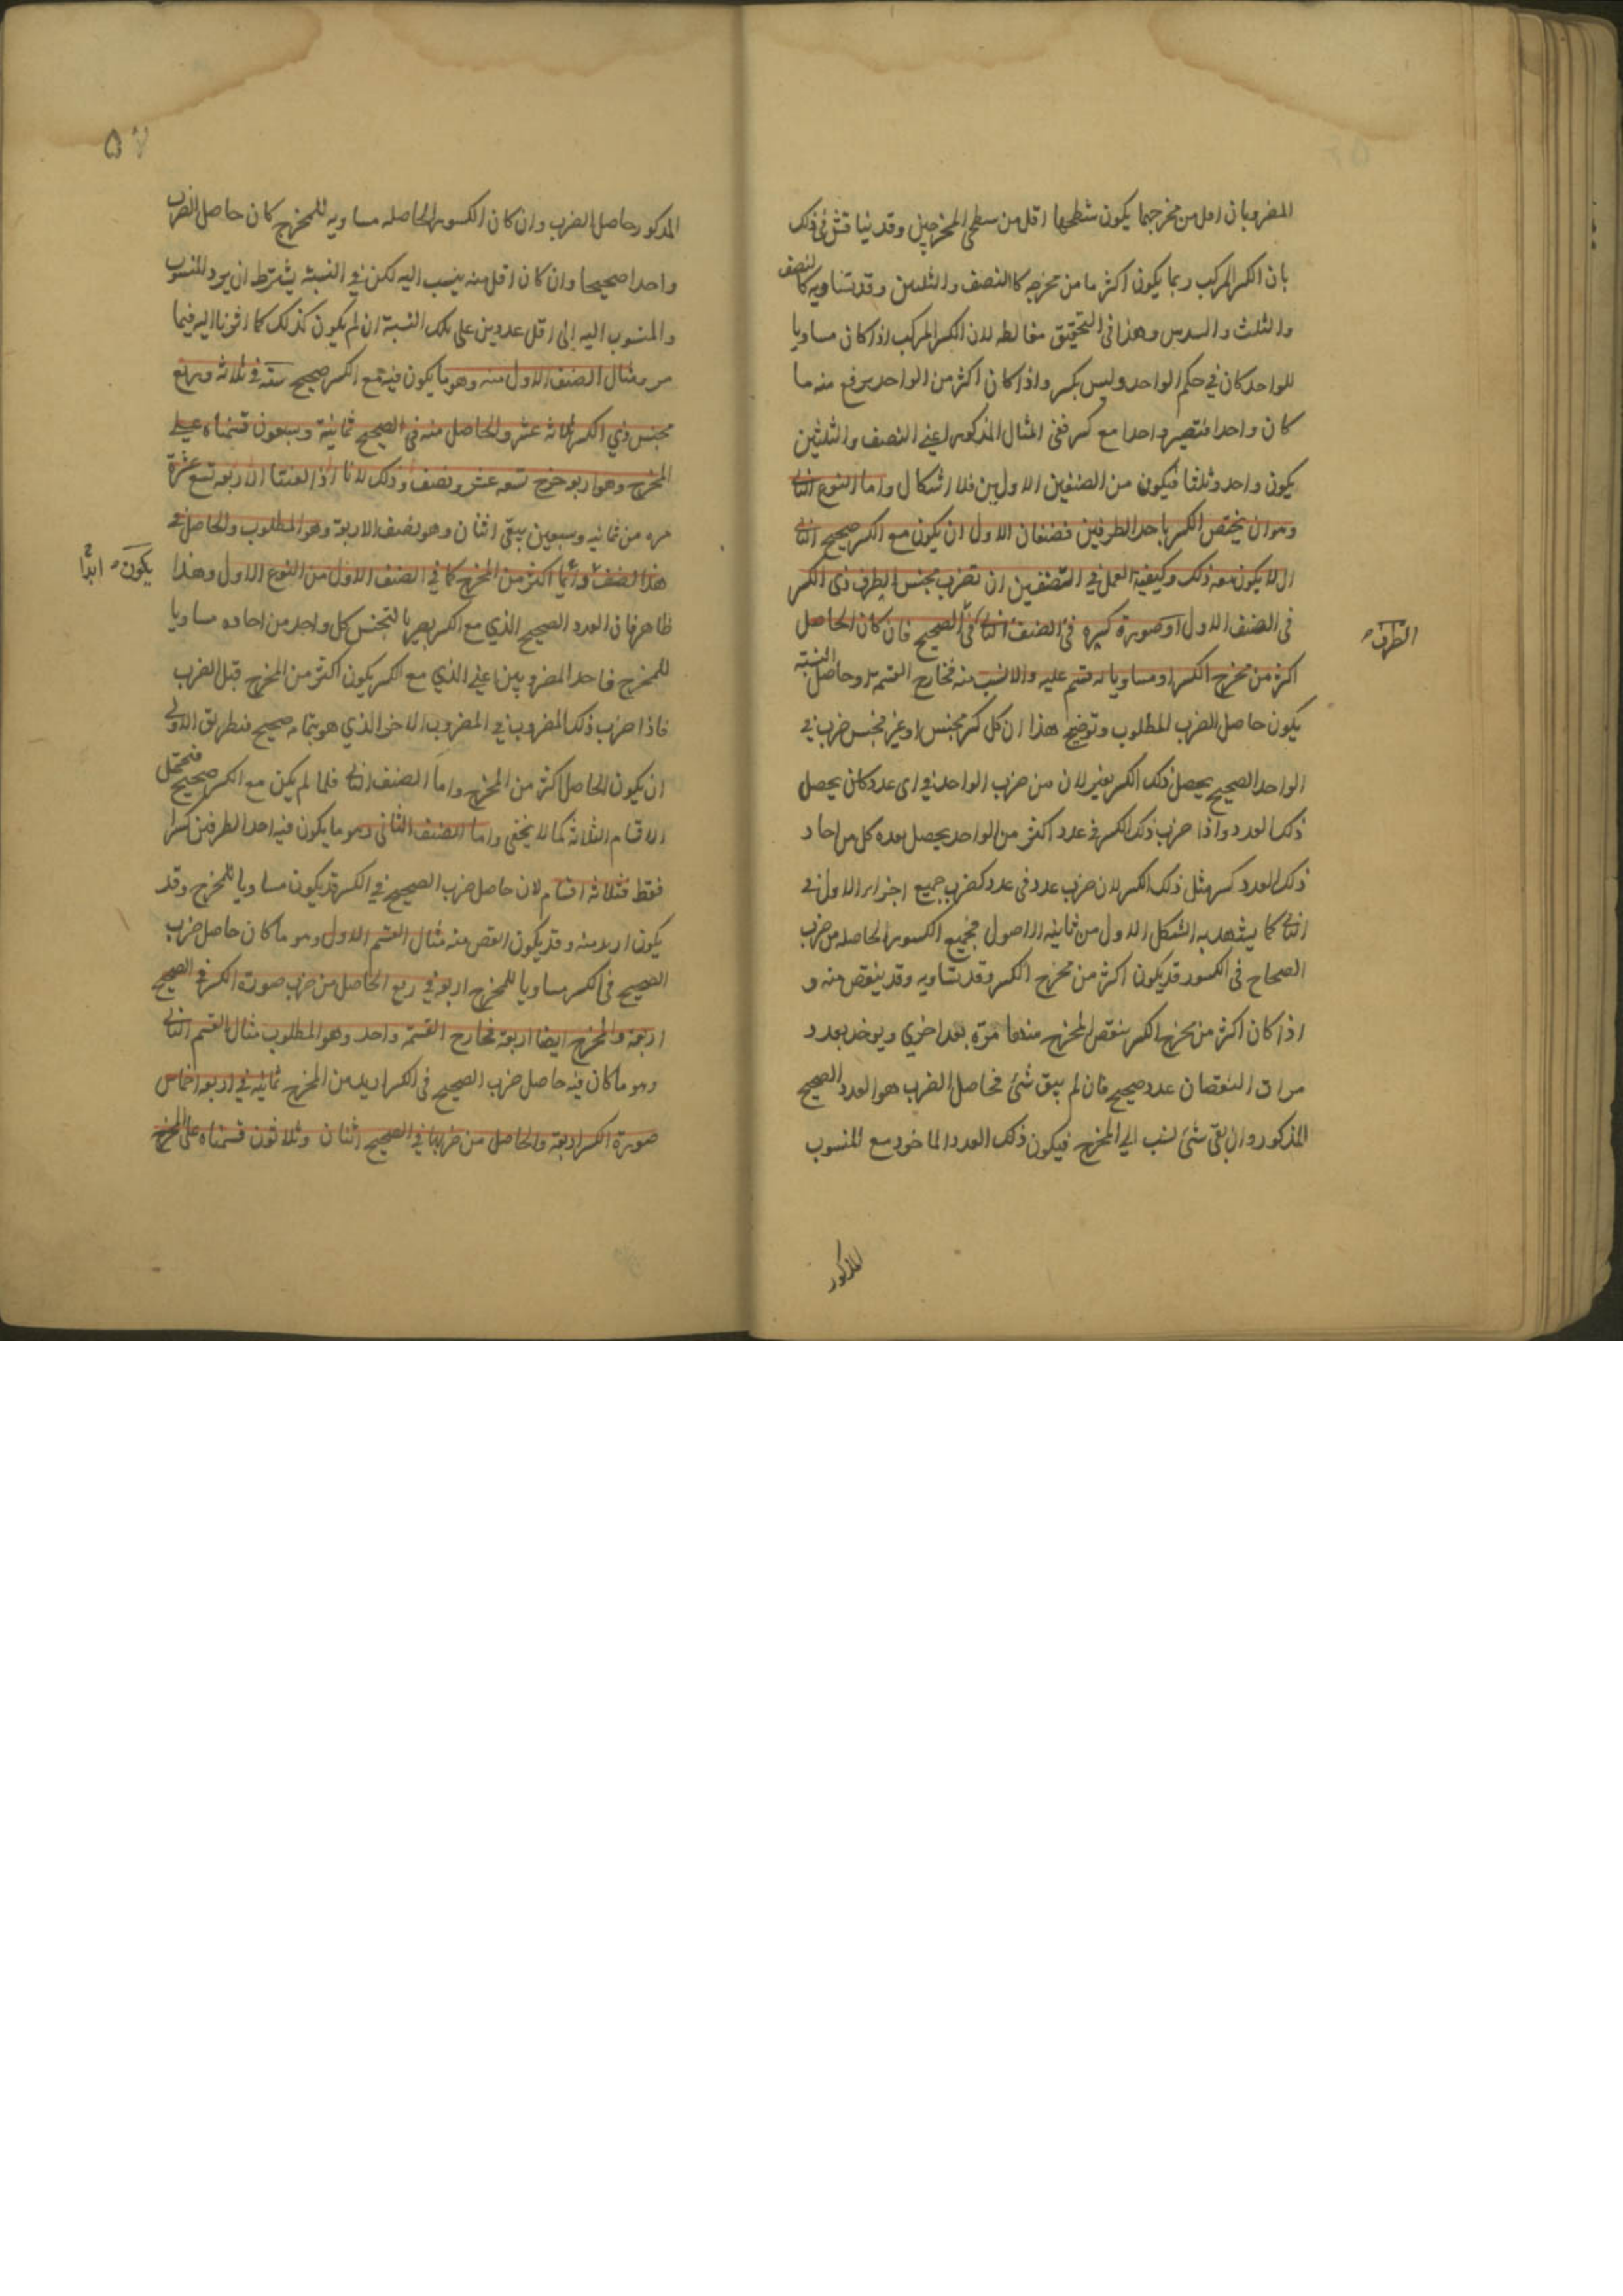 المضروبان اقل من مخرجهما يكون سطحهما اقل من سطحي المخرجين وقد يناقش في ذلك
بان الكسر المركب ربما يكون اكثر ما من مخرجه كالنصف والثلثين وقد تساويه كالنصف
والثلث والسدس وهذا في التحقيق مغالطه لان الكسر المركب اذا كان مساويا
للواحد كان في حكم الواحد وليس بكسر واذا كان اكثر من الواحد يرفع منه ما
كان واحدا فتصير واحدا مع كسر ففي المثال المذكور اعني النصف والثلثين
يكون واحد وثلثا فيكون من الصنفين الاولين فلا اشكال واما النوع الثاني
وهو ان يختص الكسر باحد الطرفين فصنفان الاول ان يكون مع الكسر صحيح الثاني
ان لا يكون معه ذلك وكيفية العمل في الصنفين ان تضرب مجنس الطرف ذي الكسر
في الصنف الاول او صورة كسره في الصنف الثاني في الصحيح فان كان الحاصل
الطرف
اكثر من مخرج الكسر او مساويا له قسم عليه والا نسب منه فخارج القسمة او حاصل النسبة
يكون حاصل الضرب المطلوب وتوضيح هذا ان كل كسر مجنس او غير مجنس ضرب في
الواحد الصحيح يحصل ذلك الكسر بعينه لان من ضرب الواحد في اى عدد كان يحصل
ذلك العدد واذا ضرب ذلك الكسر في عدد اكثر من الواحد يحصل بعده كل من احاد
ذلك العدد كسر مثل ذلك الكسر لان ضرب عدد في عدد كضرب جميع اجزاء الاول في
الثاني كما يشهد به الشكل الاول من ثانية الاصول فجميع الكسور الحاصله من ضرب
الصحاح في الكسور قد يكون اكثر من مخرج الكسر وقد تساويه وقد ينقص منه و
اذا كان اكثر من مخرج الكسر ينقص المخرج منها مرّة بعد اخرى ويوخذ بعدد
مرات النقصان عدد صحيح فان لم يبق شئ فحاصل الضرب هو العدد الصحيح
المذكور وان بقى شئ نسب الى المخرج فيكون ذلك العدد الماخوذ مع المنسوب
المذكور
٥٧
المذكور حاصل الضرب وان كان الكسور الحاصله مساويه للمخرج كان حاصل الضرب
واحدا صحيحا وان كان اقل منه ينسب اليه لكن في النسبة يشترط ان يرد المنسوب
والمنسوب اليه الى اقل عددين على تلك النسبة ان لم يكون كذلك كما اشرنا اليه فيما
مر ومثال الصنف الاول منه وهو ما يكون فيه مع الكسر صحيح ستة في ثلاثة وربع
مجنس ذي الكسر ثلاثه عشر والحاصل منه في الصحيح ثمانية وسبعون قسمناه على
المخرج وهو اربع خرج تسعه عشر ونصف وذلك لانا اذا القينا الاربعه تسع عشرة
مره من ثمانيه وسبعين يبقى اثنان وهو نصف الاربعة وهو المطلوب والحاصل في
هذا الصنف دائما اكثر من المخرج كما في الصنف الاول من النوع الاول وهذا
يكون ابدًا
ظاهر فان العدد الصحيح الذي مع الكسر يصير بالتجنيس كل واحد من احاده مساويا
للمخرج فاحد المضروبين اعني الذي مع الكسر يكون اكثر من المخرج قبل الضرب
فاذا ضرب ذلك المضروب في المضروب الاخر الذي هو بتمامه صحيح فبطريق الاولى
ان يكون الحاصل اكثر من المخرج واما الصنف الثاني فلما لم يكن مع الكسر صحيح فتحتمل
الاقسام الثلاثة كما لا يخفى واما الصنف الثاني وهو ما يكون فيه احد الطرفين كسرا
فقط فثلاثة اقسام لان حاصل ضرب الصحيح في الكسر قد يكون مساويا للمخرج وقد
يكون ازيد منه وقد يكون انقص منه مثال القسم الاول وهو ما كان حاصل ضرب
الصحيح في الكسر مساويا للمخرج اربعة في ربع الحاصل من ضرب صورة الكسر في الصحيح
اربعة والمخرج ايضا اربعة فخارج القسمة واحد وهو المطلوب مثال القسم الثاني
وهو ما كان فيه حاصل ضرب الصحيح في الكسر ازيد من المخرج ثمانيه في اربعة اخماس
صورة الكسر اربعة والحاصل من ضربها في الصحيح اثنان وثلاثون قسمناه على المخرج